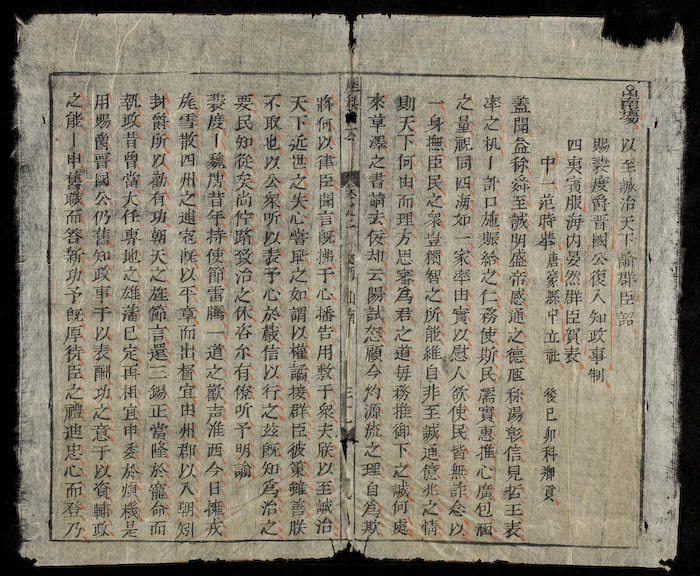 南場
以至誠治天下諭群臣詔
賜裴度爵晉國公復入知政事制
四夷賓服海内晏然群臣賀表
中一范時舉 唐豪縣中立社 後己卯科鄉貢
蓋聞益稱舜至誠明盛帝感通之德虺稱湯彰信見哲王表
率之机一計口施賑給之仁務使斯民濡實惠推心廣包涵
之量視同四海如一家率由實以慰人欲使民皆無詐念以
一身撫臣民之衆豈獨智之所能維自非至誠通億兆之情
則天下何由而理方思審爲君之道每務推御下之誠何處
來草澤之書請去佞却云陽試怒顧今灼源流之理自爲欺
山南
將何以律臣聞言既拂于心播告用敷于衆夫朕以至誠治
天下近世之失心嘗恥之如謂以權譎接群臣彼策雖善朕
不取也以公衆听以表予心於信以行之玆既知爲治之
要民知從矣尚伻路致治之休咨亦有僚听予明諭
裴度一巍唐昔年持使節雷騰一道之歡声淮西今日擁戎
旌雪散四州之逋寇既以平章而出督宜由州郡以入朝矧
封爵所以勸有功朝天之旌節言還三錫正當隆於寵命而
執政昔曾當大任專地之雄藩已定再相宜申委於煩機是
用賜爵晉國公仍舊知政事于以表酬功之意于以資輔政
之能一申舊職而答新功予既厚待臣之禮迪忠心而登乃